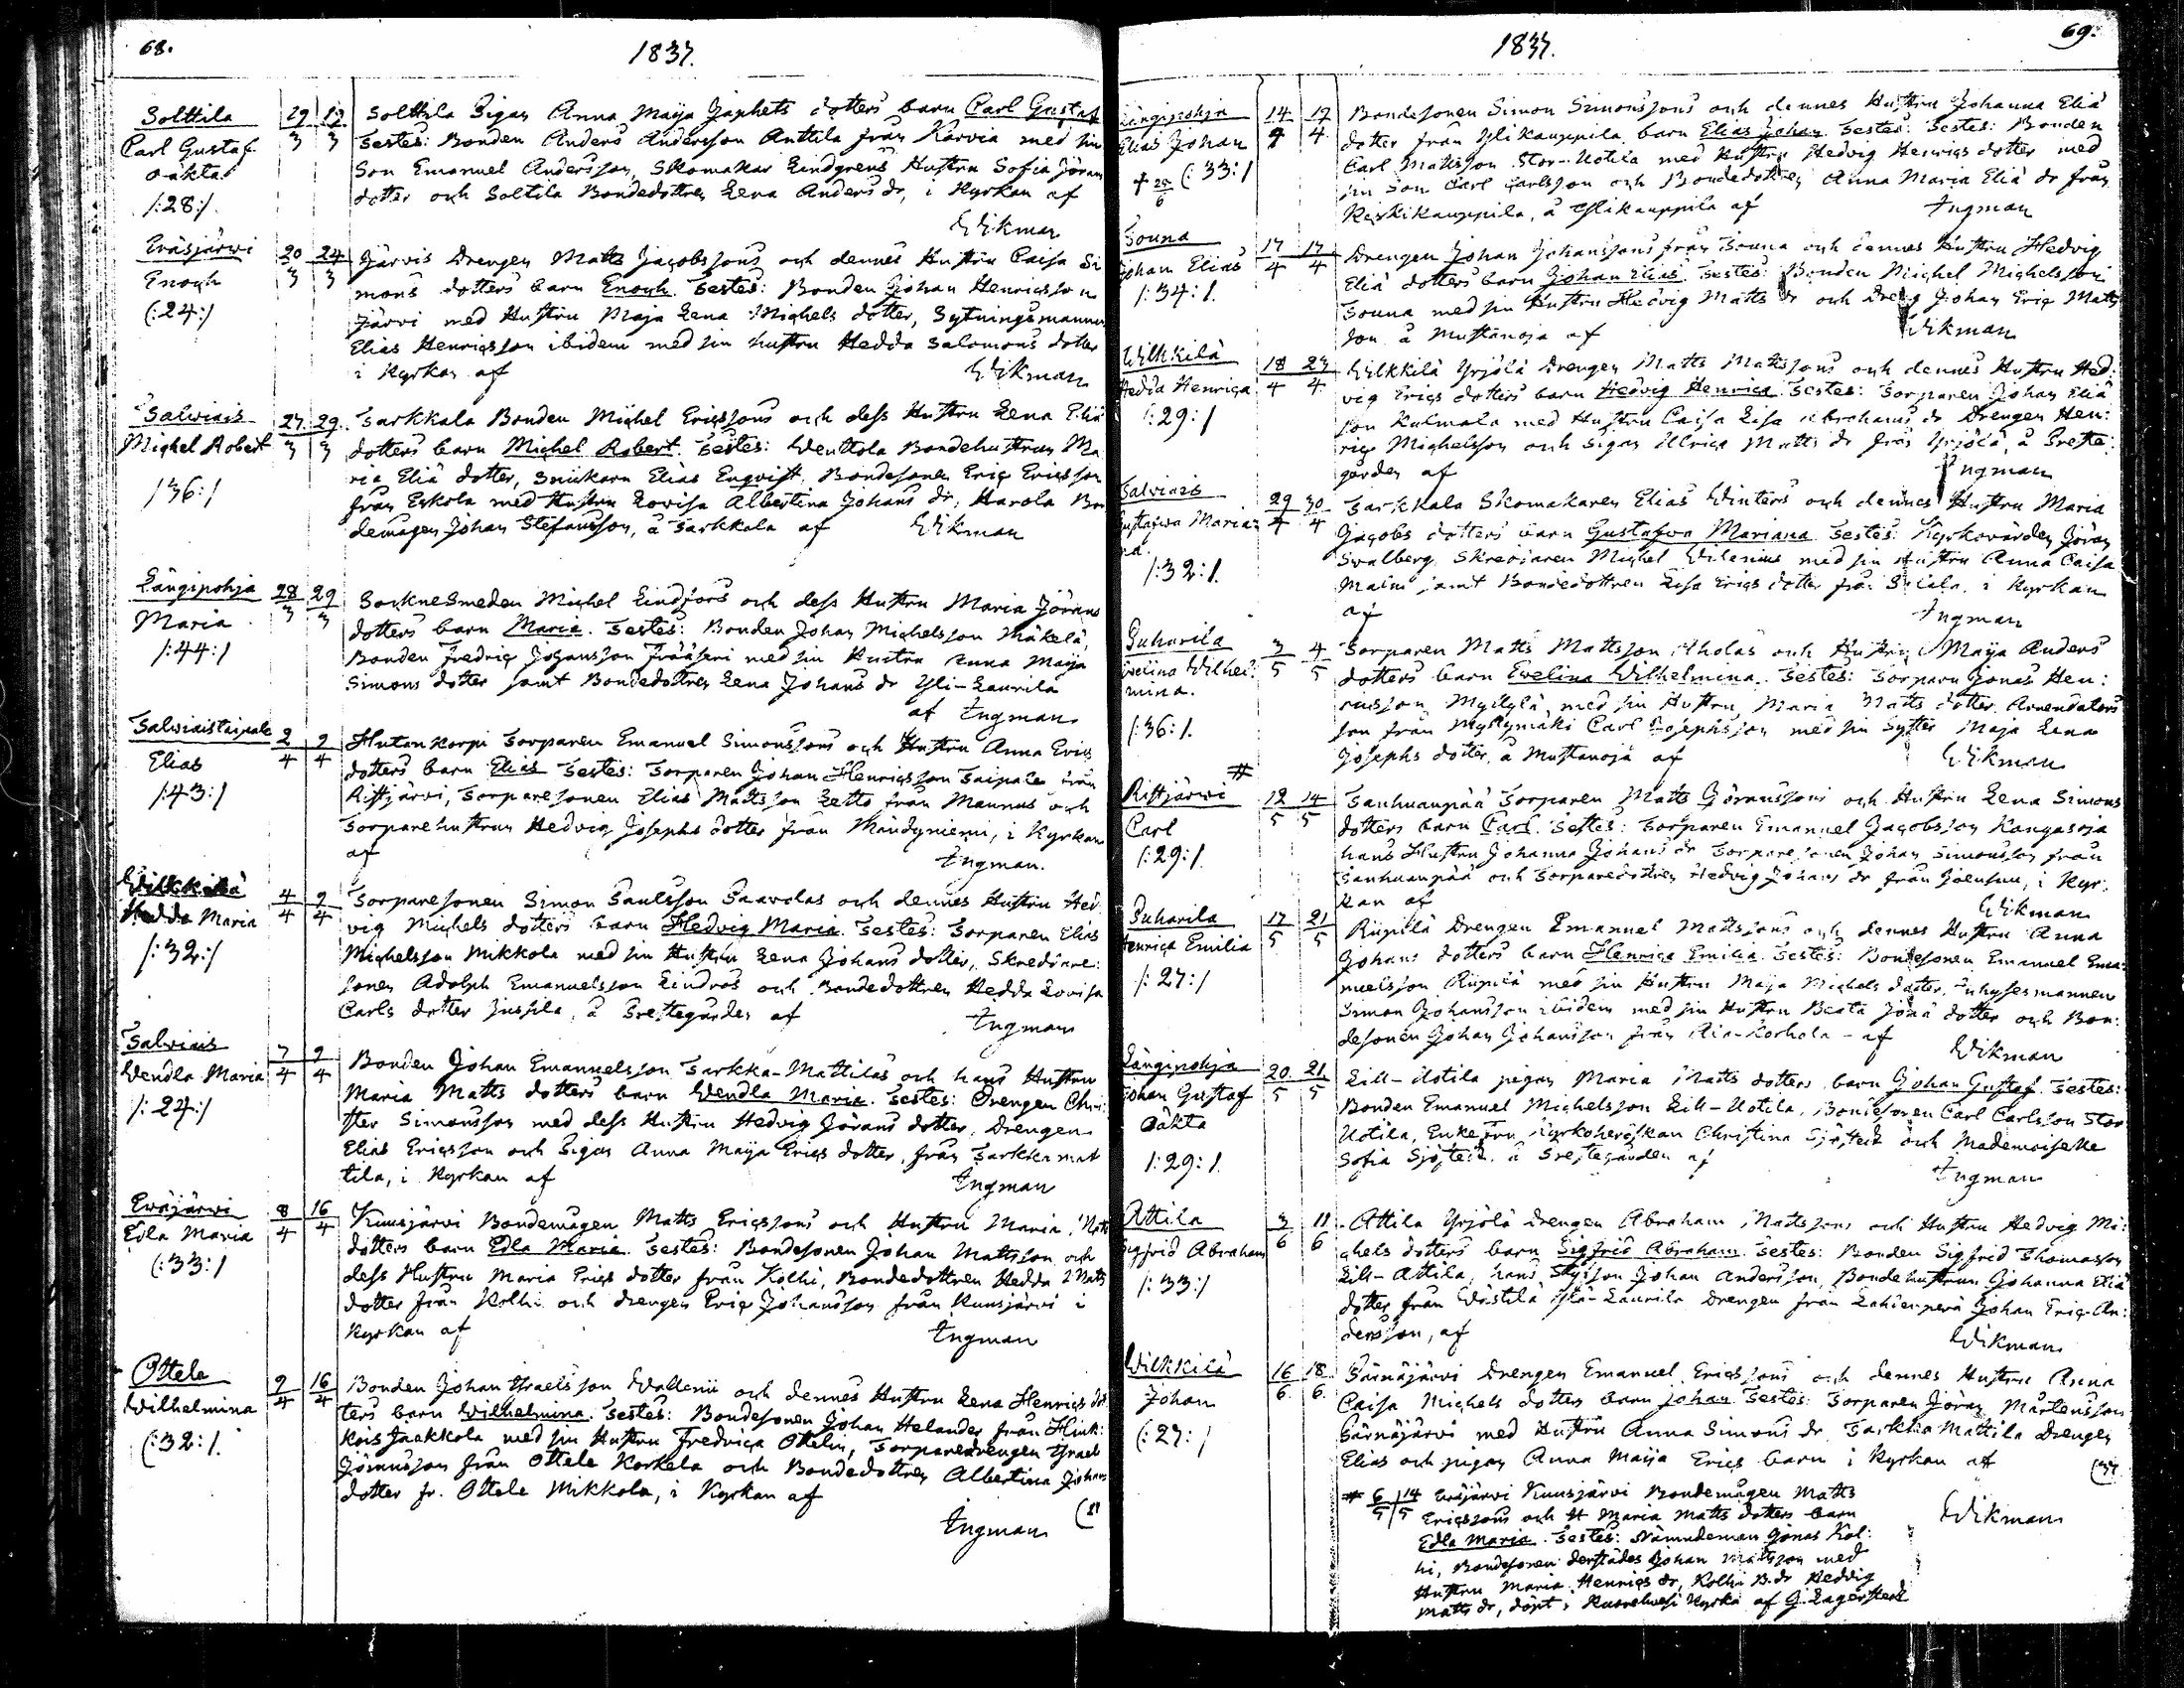 68.
1837.
Solttila
Carl Gustaf
oäkta
/:28:/
29/3 19/3
Solttila Pigan Anna Maija Japhets dotters barn Carl Gustaf
Testes: Bonden Anders Andersson Anttila från Karvia med sin
Son Emanuel Andersson, Skomakar Lindgrens Hustru Sofia Jörans
dotter och Soltila Bondedottren Lena Anders dr, i Kyrkan af
Wikman
Eräsjärwi
Enoch
(:24:/
20/3 24/3
Järvis Drengen Matts Jacobssons och dennes Hustru Caisa Si
mons dotters barn Enoch. Testes: Bonden Johan Henricsson
Järvi med Hustru Maja Lena Michels dotter, Sytningsmannen
Elias Henricsson ibidem med sin hustru Hedda Salomons dotter
i Kyrkan af
Wikman
Salwiais
Michel Robert
/36:/
27/3 29/3
Sarkkala Bonden Michel Ericssons och dess Hustru Lena Eliä
dotters barn Michel Robert. Testes: Wenttola Bondehustrun Ma
ria Eliä dotter, Snickarn Elias Enqvist, Bondesonen Eric Ericsson
från Eskola med Hustru Lovisa Albertina Johans dr, Harola Bon
demågen Johan Stefansson, å Sarkkala af
Wikman
Längipohja
Maria
/:44:/
28/3 29/3
Socknesmeden Michel Lindfors och dess Hustru Maria Jörans
dotters barn Maria. Testes: Bonden Johan Michelsson Mäkelä,
Bonden Fredric Johansson Frääseri med sin Hustru Anna Maija
Simons dotter samt Bondedottren Lena Johans dr Yli-Laurila
af Ingman
Salwiaistaipale
Elias
/:43:/
2/4 9/4
Hutankorpi Torparen Emanuel Simonssons och Hustru Anna Erics
dotters barn Elias Testes: Torparen Johan Henricsson Taipale från
Ristjärvi, Torparesonen Elias Mattsson Letto från Mannus och
Torparehustrun Hedvig Josephs dotter från Mändyniemi, i Kyrkan
af
Ingman.
Wilkkilä
Hedda Maria
/:32:/
4/4 9/4
Torparesonen Simon Paulsson Paavolas och dennes Hustru Hed
vig Michels dotters barn Hedvig Maria. Testes: Torparen Elias
Michelsson Mikkola med sin Hustru Lena Johans dotter, Skreddare-
sonen Adolph Emanuelsson Lindros och Bondedottren Hedda Lovisa
Carls dotter Jussila, å Prestegården af
Ingman
Salwiais
Wendla Maria
/:24:/
7/4 9/4
Bonden Johan Emanuelsson Sarkka-Mattilas och hans Hustru
Maria Matts dotters barn Wendla Maria. Testes: Drengen Chri-
ster Simonsson med dess Hustru Hedvig Jörans dotter, Drengen
Elias Ericsson och Pigan Anna Maija Erics dotter från Sarkka mat
tila, i Kyrkan af
Ingman
Eräjärwi
Edla Maria
(:33:/
8/4 16/4
Kuusjärvi Bondemågen Matts Ericssons och Hustru Maria Matts
dotters barn Edla Maria. Testes: Bondesonen Johan Mattsson och
dess Hustru Maria Erics dotter från Kolhi, Bondedottren Hedda Matts
dotter från Kolhi och drengen Eric Johansson från Kuusjärvi i
Kyrkan af
Ingman
Ottele
Wilhelmina
(:32:/
9/4 16/4
Bonden Johan Israelsson Wallenii och dennes Hustru Lena Henrics dot
ters barn Wilhelmina. Testes: Bondesonen Johan Helander från Hink:
kois Jaakkola med sin Hustru Fredrica Ottelin, Torparedrengen Israel
Göransson från Ottele Korkela och Bondedottren Albertina Johans
dotter fr. Ottele Mikkola, i Kyrkan af
Ingman
69.
1837.
Längipohja
Elias Johan
(:33:/
† 20/6
14/4 19/4
Bondesonen Simon Simonssons och dennes Hustru Johanna Eliä
dotter från Ylikauppila barn Elias Johan Testes: Testes: Bonden
Carl Mattsson Stor-Uotila med Hustru Hedvig Henrics dotter med
sin Son Carl Carlsson och Bondedottren Anna Maria Eliä dr från
Keskikauppila, å Ylikauppila af
Ingman
Souna
Johan Elias
/:34:/
17/4 17/4
Drengen Johan Johanssons från Souna och dennes Hustru Hedvig
Eliä dotters barn Johan Elias. Testes: Bonden Michel Michelsson
Souna med sin Hustru Hedvig Matts dr och Dreng Johan Eric Matts
son å Mustanoja af
Wikman
Wilkkilä
Hedda Henrica
/:29:/
18/4 23/4
Wilkkilä Yrjölä Drengen Matts Mattssons och dennes Hustru Hed:
vig Erics dotters barn Hedvig Henrica Testes: Torparen Johan Eliä
son Kulmala med Hustru Caisa Lisa Abrahams dr Drengen Hen:
ric Michelsson och Pigan Ulrica Matts dr från Yrjölä, å Preste:
gården af
Ingman
Salwiais
Gustafwa Maria:
na.
/:32:/
29/4 30/4
Sarkkala Skomakaren Elias Winters och dennes Hustru Maria
Jacobs dotters barn Gustafwa Mariana Testes: Kyrkovärden Jöran
Swalberg Skreddaren Michel Wilenius med sin Hustru Anna Caisa
Malm samt Bondedottren Lisa Erics dotter från, i Kyrkan
af
Ingman
Puharila
Evelina Wilhel:
mina.
/:36:/
3/5 4/5
Torparen Matts Mattsson Aholas och Hustru Maija Anders
dotters barn Ewelina Wilhelmina. Testes: Torparn Jonas Hen:
ricsson Myllylä, med sin Hustru Maria Matts dotter Arrendators
son från Myllymäki Carl Josephsson med sin Syster Maja Lena
Josephs dotter, å Mustanoja af
Wikman
#
Ristjärwi
Carl
/:29:/
12/5 14/5
Sanhuanpää Torparen Matts Göranssons och Hustru Lena Simons
dotters barn Carl. Testes: Torparen Emanuel Jacobsson Kangasoja
hans Hustru Johanna Johans dr Torparesonen Johan Simonsson från
Sanhuanpää och Torparedottren Hedvig Johans dr från Joensuu, i Kyr:
kan af
Wikman
Puharila
Henrica Emilia
/:27:/
17/5 21/5
Riipilä Drengen Emanuel Mattssons och dennes Hustru Anna
Johans dotters barn Henrica Emilia Testes: Bondesonen Emanuel Ema:
nuelsson Riipilä med sin Hustru Maija Michels dotter, Inhysesmannen
Simon Johansson ibidem med sin Hustru Beata Jonä dotter och Bon:
desonen Johan Johansson från Ala-Korhola - af
Wikman
Längipohja
Johan Gustaf
Oäkta
/:29:/
20/5 21/5
Lill-Uotila pigan Maria Matts dotters barn Johan Gustaf. Testes:
Bonden Emanuel Michelsson Lill-Uotila, Bondesonen Carl Carlsson Stor
Uotila, Enkefru Kyrkoherdskan Christina Sjöstedt och Mademoiselle
Sofia Sjöstedt å Prestegården af
Ingman
Attila
Sigfrid Abraham
/:33:/
3/6 11/6
Attila Yrjölä Drengen Abraham Mattssons och Hustru Hedvig Mi:
chels dotters barn Sigfrid Abraham. Testes: Bonden Sigfrid Thomasson
Lill-Attila, hans Styfson Johan Andersson, Bondehustrun Johanna Eliä
dotter från Wästilä Ylä-Laurila Drengen från Lahdenperä Johan Eric An:
dersson, af
Wikman
Wilkkilä
Johan
(:27:/
16/6 18/6
Särnäjärvi Drengen Emanuel Ericssons och dennes Hustru Anna
Caisa Michels dotters barn Johan Testes: Torparen Jöran Mårtensson
Särnäjärvi med Hustru Anna Simons dr Sarkka Mattila Drengen
Elias och pigan Anna Maija Erics barn i Kyrkan af
Wikman
# 6/5 14/5 Eräjärvi Kuusjärvi Bondemågen Matts
Ericssons och H Maria Matts dotters barn
Edla Maria. Testes: Nämndeman Jonas Kol:
hi, Bondesonen derstädes Johan Mattsson med
Hustru Maria Henrics dr, Kolhi B.dr Hedvig
Matts dr, döpt i Kuorehvesi Kyrka af G. Lagerstedt